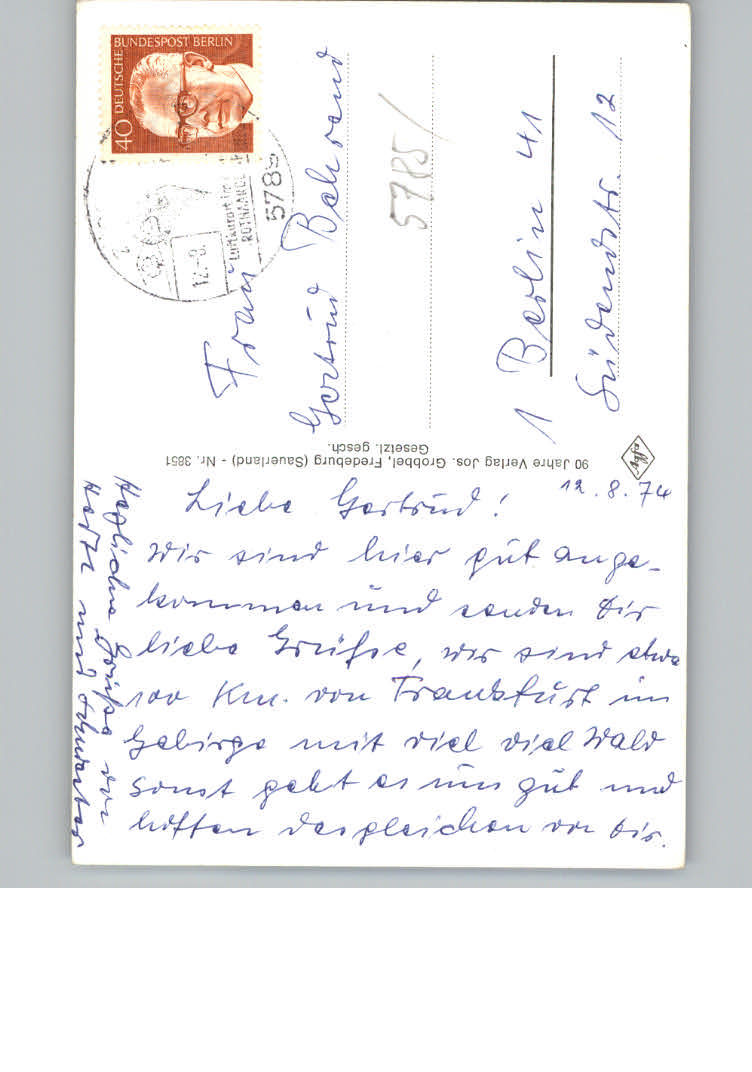 12.8.74
Liebe Gertrud!
Wir sind hier gut ange-
kommen und senden Dir
liebe Grüße, wir sind etwa
100 Km. von Frankfurt im
Gebirge mit viel viel Wald
sonst geht es uns gut und
hoffen desgleichen von Dir.
Herzliche Grüße von
und Schwester
Frau
Gertrud Behrend
5785/
1 Berlin 41
Südendstr. 12
90 Jahre Verlag Jos. Grobbel, Fredeburg (Sauerland) - Nr. 3851
Gesetzl. gesch.
DEUTSCHE BUNDESPOST BERLIN
40
5789
Luftkurort im
12.-8.